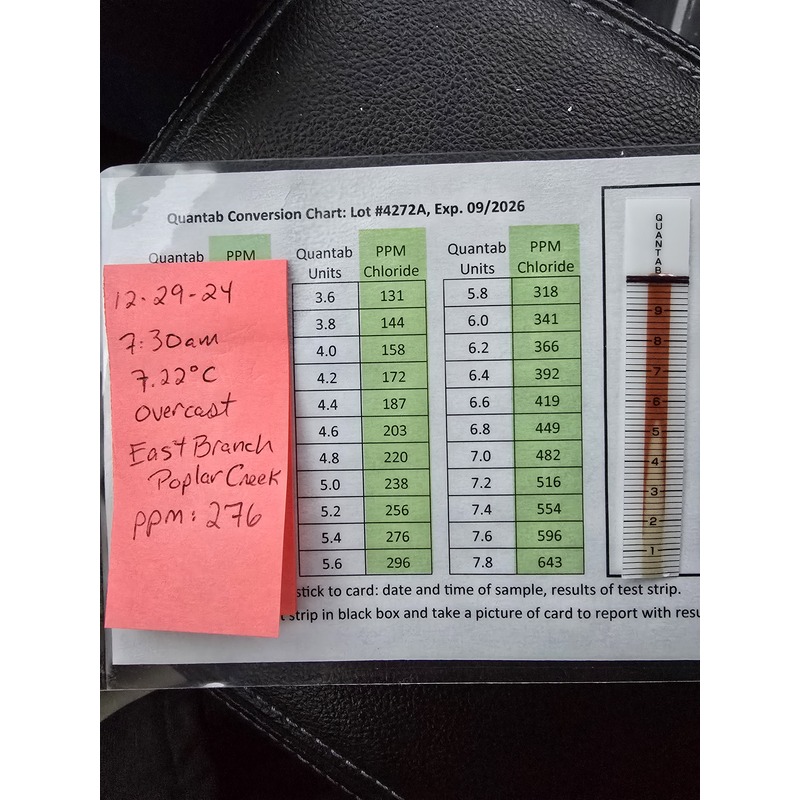 Quantab Conversion Chart: Lot #4272A, Exp. 09/2026
Quantab PPM
Quantab Units PPM Chloride
3.6 131
3.8 144
4.0 158
4.2 172
4.4 187
4.6 203
4.8 220
5.0 238
5.2 256
5.4 276
5.6 296
Quantab Units PPM Chloride
5.8 318
6.0 341
6.2 366
6.4 392
6.6 419
6.8 449
7.0 482
7.2 516
7.4 554
7.6 596
7.8 643
QUANTAB
9
8
7
6
5
4
3
2
1
12-29-24
7:30am
7.22°C
Overcast
East Branch
Poplar Creek
ppm: 276
stick to card: date and time of sample, results of test strip.
strip in black box and take a picture of card to report with